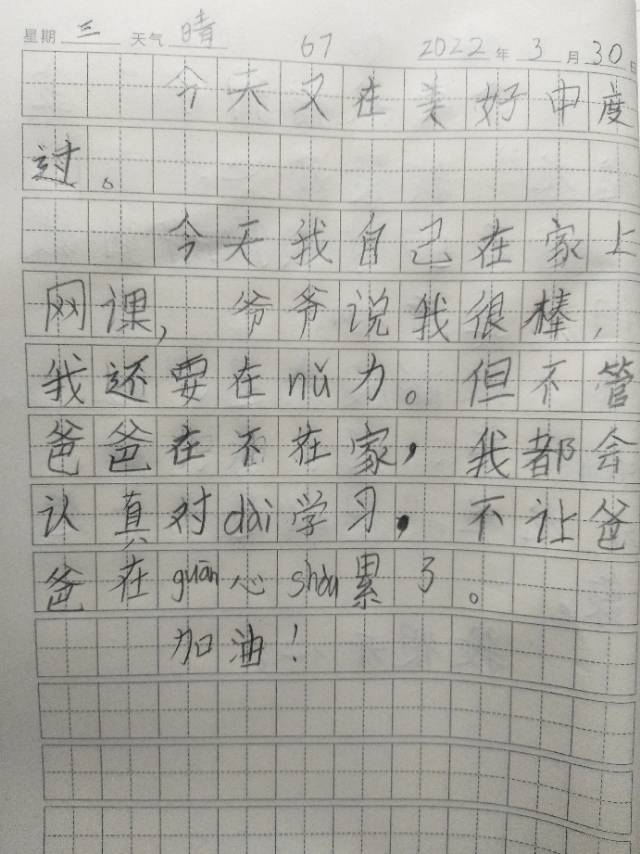 星期 三 天气 晴 67 2022 年 3 月 30 日
今天又在美好中度
过。
今天我自己在家上
网课，爷爷说我很棒，
我还要在nǔ力。但不管
爸爸在不在家，我都会
认真对dài学习，不让爸
爸在guān心shòu累了。
加油！